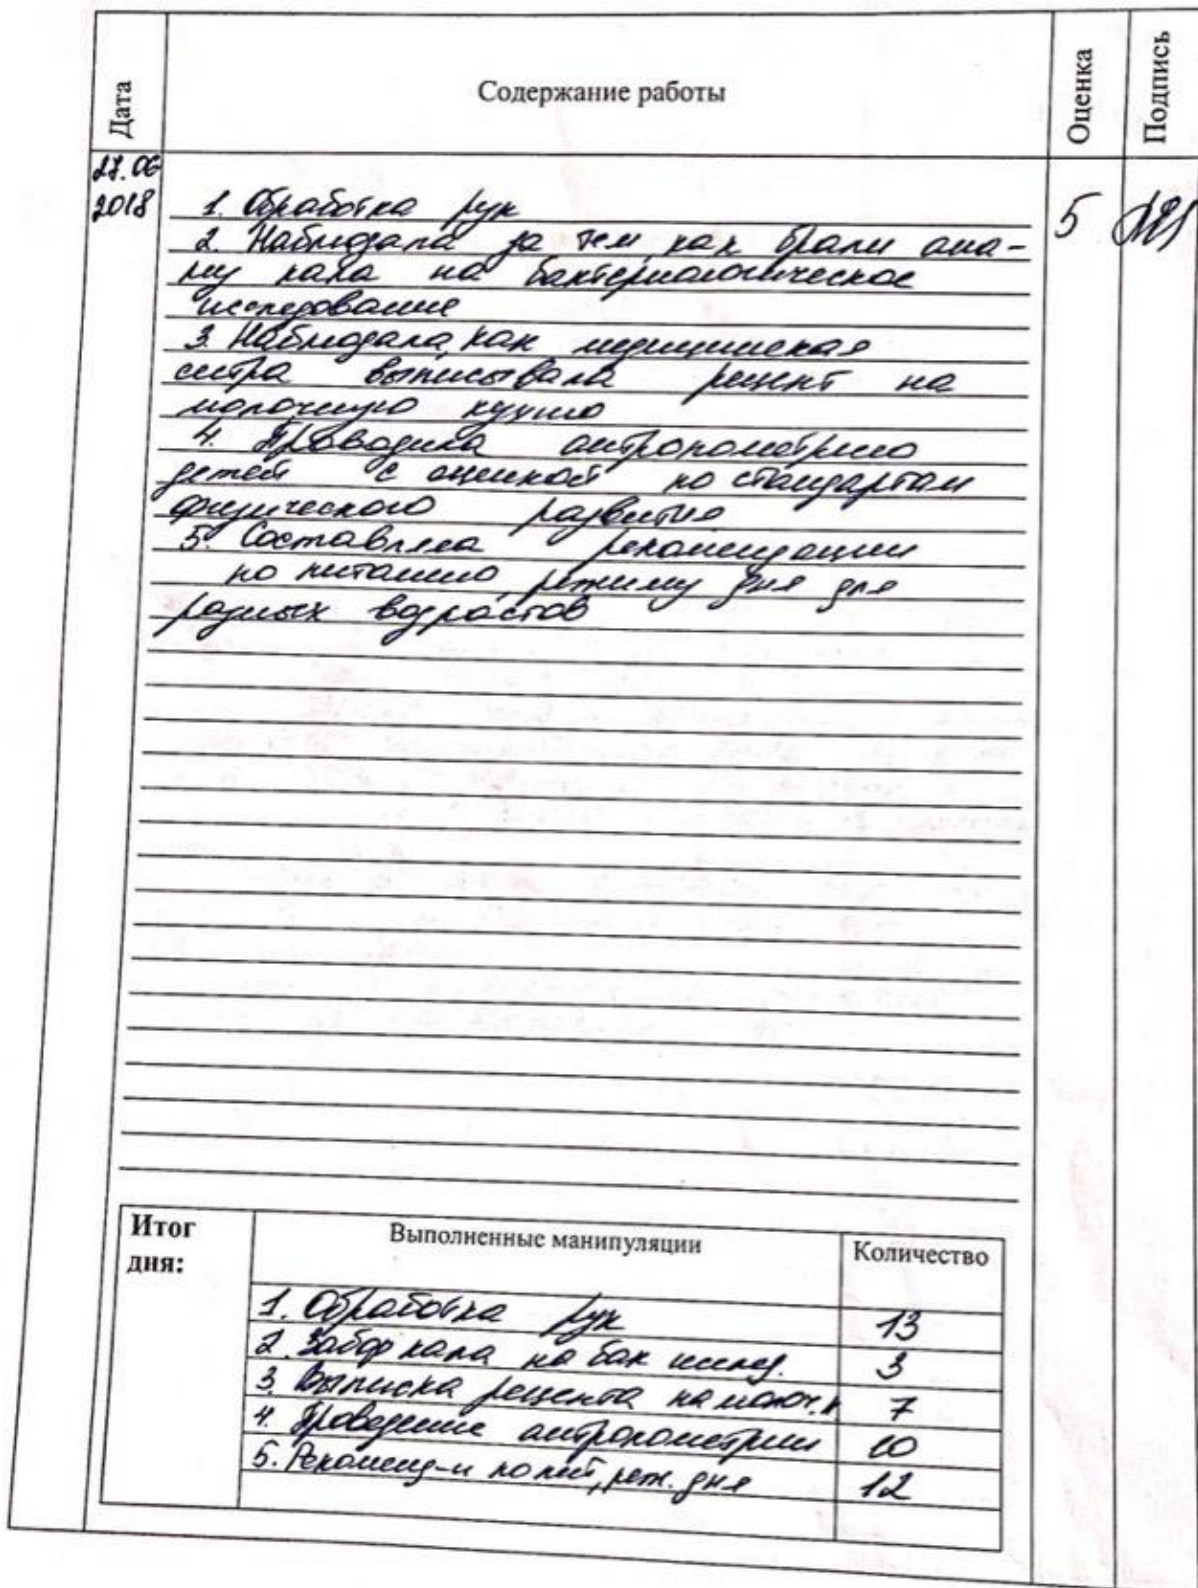 Дата Содержание работы Оценка Подпись
27.06
2018 1. Обработка рук 5
2. Наблюдала за тем как брали ана-
лиз кала на бактериологическое
исследование
3. Наблюдала, как медицинская
систра выписывала рецепт на
молочную кухню
4. Проводила антропометрию
детей с оценкой по стандартам
физического развития
5. Составляла рекомендации
по питанию, режиму дня для
разных возрастов
Итог Выполненные манипуляции Количество
дня:
1. Обработка рук 13
2. Забор кала на бак исслед. 3
3. Выписка рецепта на молоч. к 7
4. Проведение антропометрии 10
5. Рекоменд-и по пит, реж. дня 12